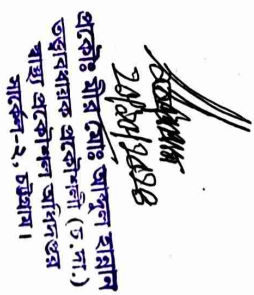 প্রকৌঃ মীর মোঃ আব্দুল হান্নান
তত্ত্বাবধায়ক প্রকৌশলী (চ.দা.)
স্বাস্থ্য প্রকৌশল অধিদপ্তর
সার্কেল-২, চট্টগ্রাম।